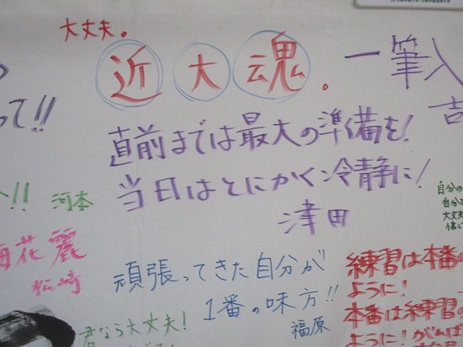 大丈夫。
近大魂。
一筆入
って!!
直前までは最大の準備を!
当日はとにかく冷静に!
津田
吉
!!
河本
花麗
松崎
頑張ってきた自分が
1番の味方!!
福原
君なら大丈夫!
自分の
自分
大丈夫
練習は本番の
ように!
本番は練習の
ように!がんば